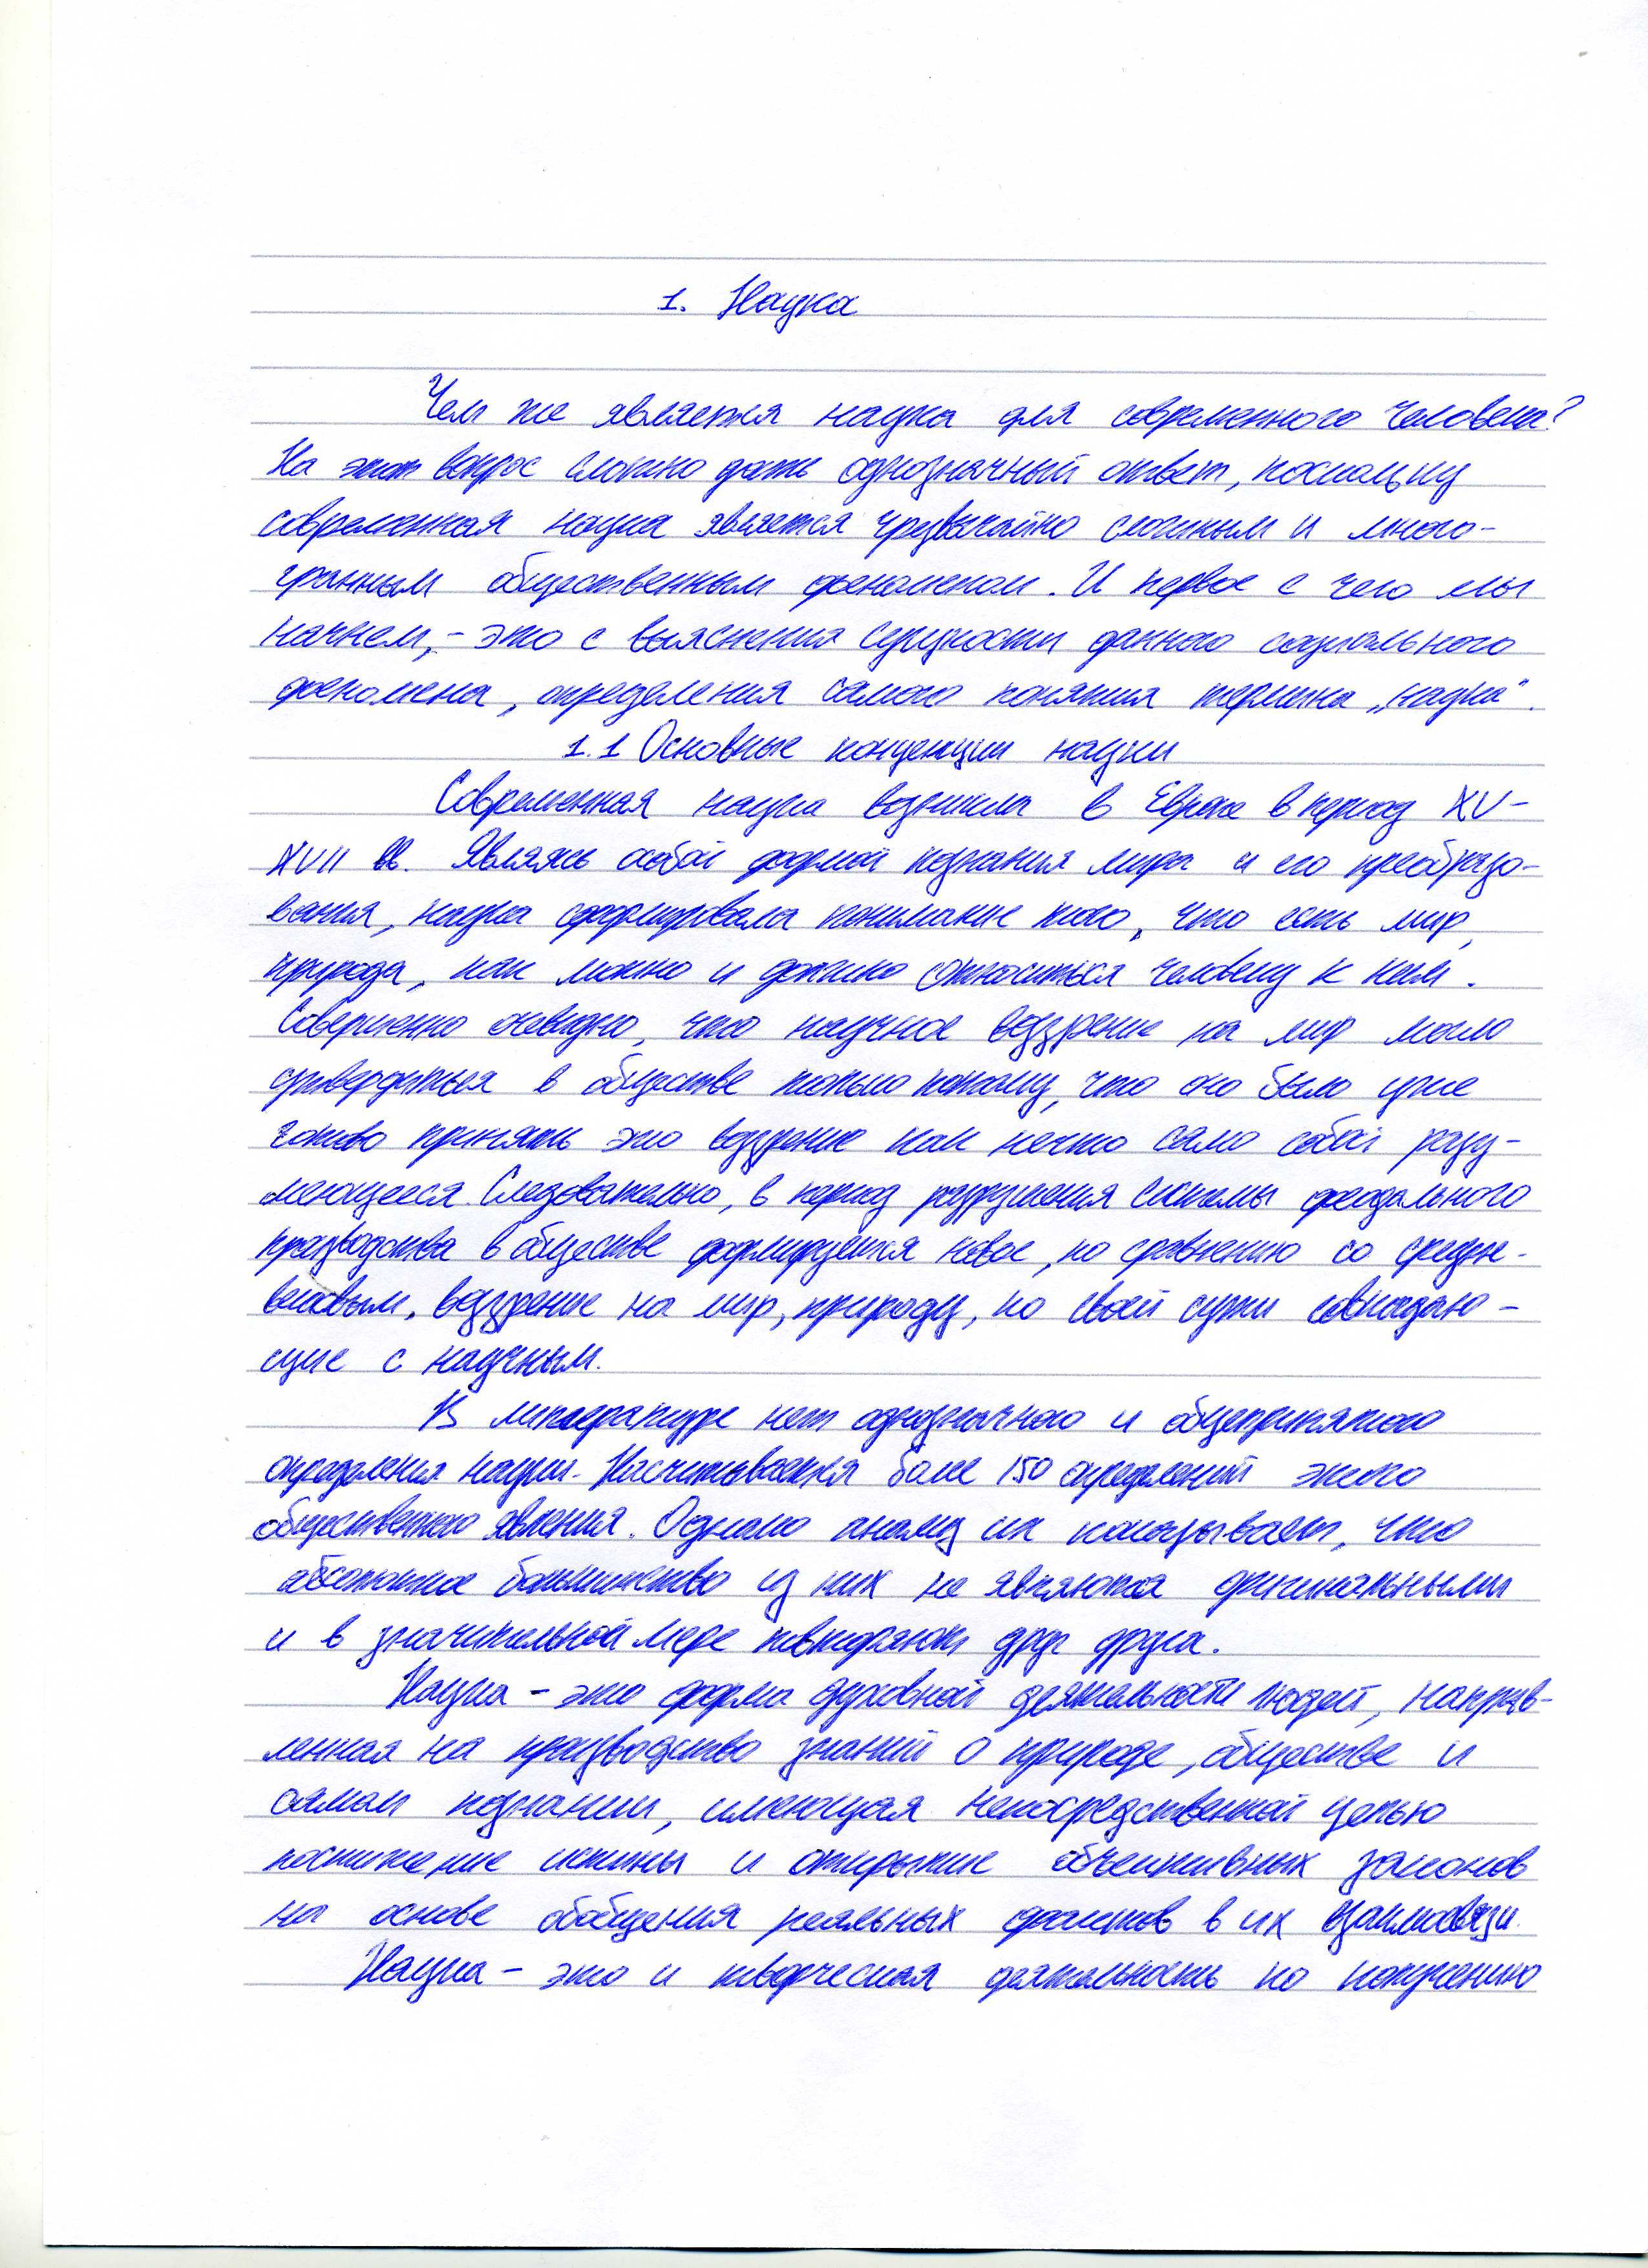 1. Наука
Чем же является наука для современного человека?
На этот вопрос сложно дать однозначный ответ, поскольку
современная наука является чрезвычайно сложным и много-
гранным общественным феноменом. И первое с чего мы
начнем, - это с выяснения сущности данного социального
феномена, определения самого понятия термина „наука“.
1.1 Основные концепции науки
Современная наука возникла в Европе в период XV-
XVII вв. Являясь особой формой познания мира и его преобразо-
вания, наука сформировала понимание того, что есть мир,
природа, как можно и должно относиться человеку к ним.
Совершенно очевидно, что научное воззрение на мир могло
утвердиться в обществе только потому, что оно было уже
готово принять это воззрение как нечто само собой разу-
меющееся. Следовательно, в период разрушения системы феодального
производства в обществе формируется новое, по сравнению со средне-
вековым, воззрение на мир, природу, по своей сути совпадаю-
щие с научным.
В литературе нет однозначного и общепринятого
определения науки. Насчитывается более 150 определений этого
общественного явления. Однако анализ их показывает, что
абсолютное большинство из них не являются оригинальными
и в значительной мере повторяют друг друга.
Наука - это форма духовной деятельности людей, направ-
ленная на производство знаний о природе, обществе и
самом познании, имеющая непосредственной целью
постижение истины и открытие объективных законов
на основе обобщения реальных фактов в их взаимосвязи.
Наука - это и творческая деятельность по получению